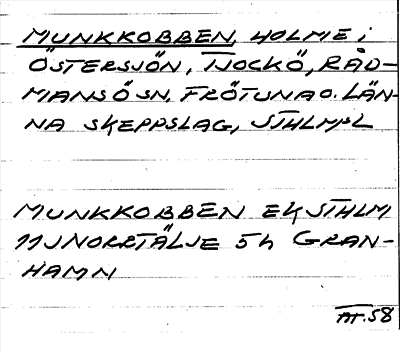 MUNKKOBBEN, HOLME i
ÖSTERSJÖN, TJOCKÖ, RÅD-
MANSÖ SN, FRÖTUNA O. LÄN-
NA SKEPPSLAG, STHLMS L
MUNKKOBBEN EK STHLM
11J NORRTÄLJE 5h GRAN-
HAMN
AT. 58